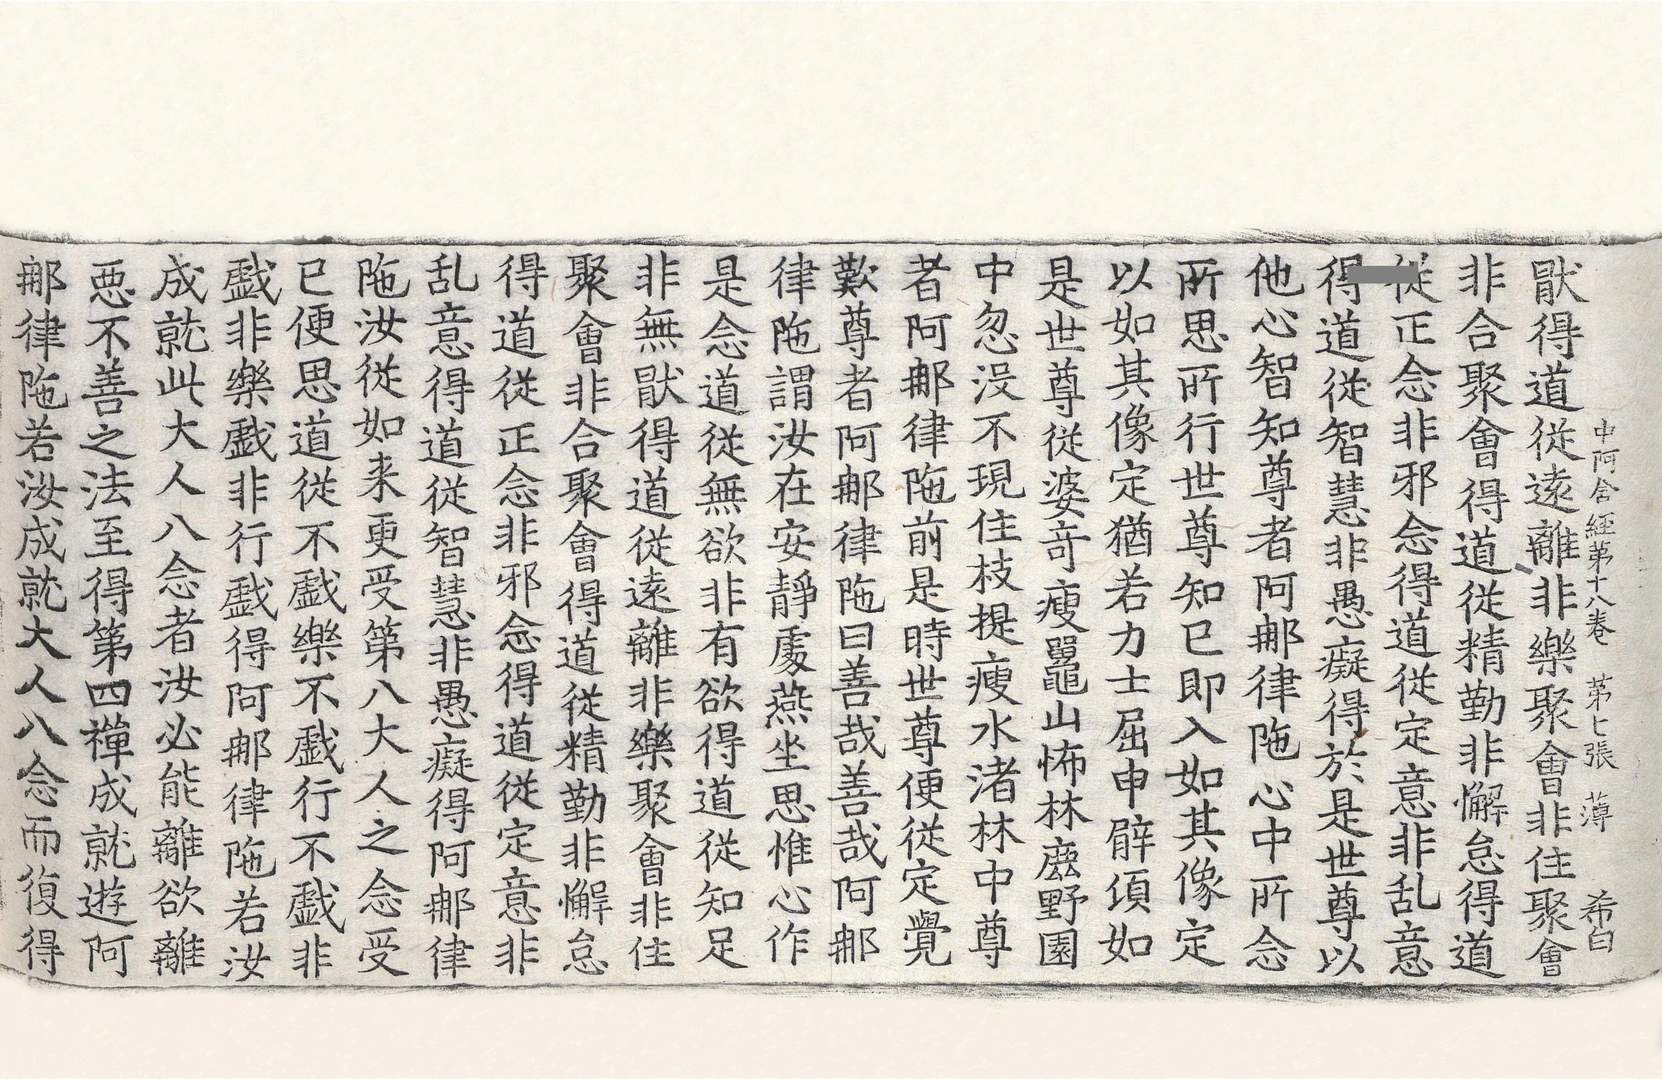 中阿含經第十八卷 第七張 薄 希白
猒得道從遠離非樂聚會非住聚會
非合聚會得道從精勤非懈怠得道
從正念非邪念得道從定意非乱意
得道從智慧非愚癡得於是世尊以
他心智知尊者阿那律陁心中所念
所思所行世尊知已即入如其像定
以如其像定猶若力士屈申臂頃如
是世尊從婆奇瘦鼉山怖林鹿野園
中忽没不現住枝提瘦水渚林中尊
者阿那律陁前是時世尊便從定覺
歎尊者阿那律陁曰善哉善哉阿那
律陁謂汝在安靜處燕坐思惟心作
是念道從無欲非有欲得道從知足
非無猒得道從遠離非樂聚會非住
聚會非合聚會得道從精勤非懈怠
得道從正念非邪念得道從定意非
乱意得道從智慧非愚癡得阿那律
陁汝從如来更受第八大人之念受
已便思道從不戲樂不戲行不戲非
戲非樂戲非行戲得阿那律陁若汝
成就此大人八念者汝必能離欲離
悪不善之法至得第四禪成就遊阿
那律陁若汝成就大人八念而復得